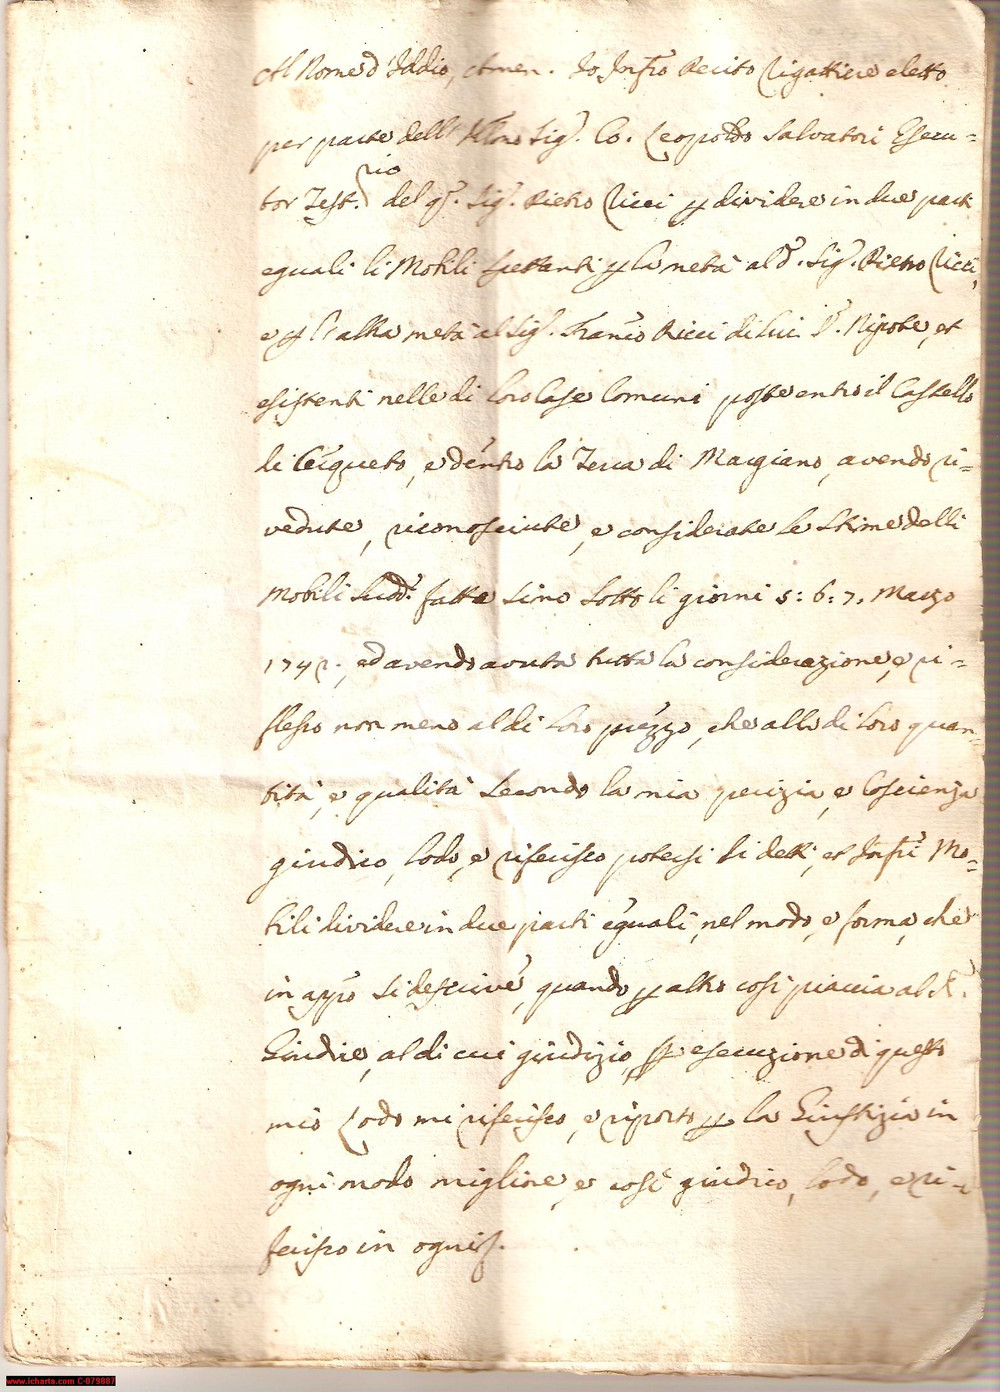 Al Nome d'Iddio, Amen. Io Infro Perito Rigattiere eletto
per parte dell' Sig.r Co. Leopoldo Salvatori Esecu=
tor Test.rio del q.m Sig.r Pietro Ricci p dividere in due parti
eguali li Mobili spettanti p la metà al d.o Sig.r Pietro Ricci,
e p l'altra metà al Sig.r Fran.co Ricci di lui Nipote, et
esistenti nelle di loro Case Comuni poste entro il Castello
di Cerqueto, e dentro la Terra di Marsiano, avendo ri=
vedute, riconosciute, e considerate le stime delli
Mobili sudd.i fatte sino sotto li giorni 5: 6: 7, Marzo
ed avendo avuta tutta la considerazione, e ri=
flesso non meno al di loro prezzo, che alla di loro quan=
tità, e qualità secondo la mia perizia, e Coscienza
giudico, lodo, e riferisco potersi li detti, et Infri Mo=
bili dividere in due parti eguali, nel modo, e forma, che
in app.o si descrive, quando p altro così piaccia al
Giudice, al di cui giudizio, p esecuzione di questo
mio Lodo mi riferisco, e riporto p la Giustizia in
ogni modo migliore, e così giudico, lodo, e ri=
ferisco in ogni
www.icharta.com C-079887